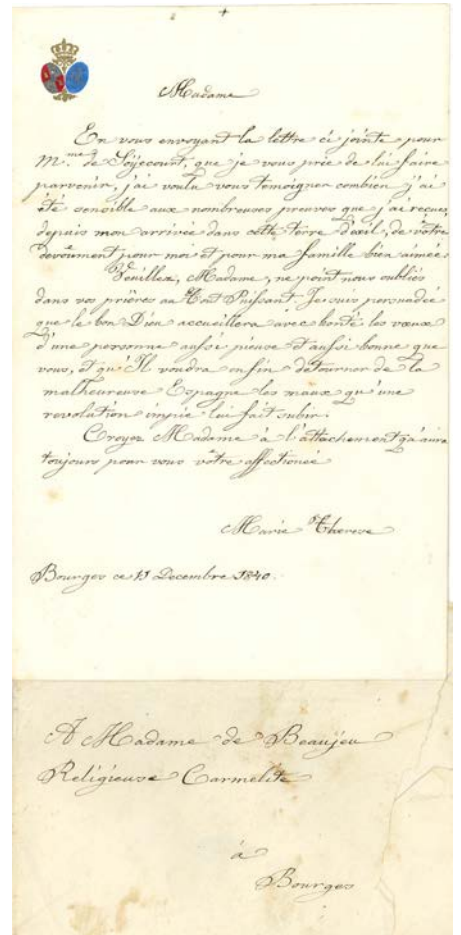 Madame
En vous envoyant la lettre ci jointe pour
M.me de Soÿecourt, que je vous prie de lui faire
parvenir, j'ai voulu vous temoigner combien j'ai
été sensible aux nombreuses preuves que j'ai reçues
depuis mon arrivée dans cette terre d'exil, de vôtre
devoûment pour moi et pour ma famille bien aimée.
Veuillez, Madame, ne point nous oublier
dans vos prières au Tout Puissant. Je suis persuadée
que le bon Dieu accueillera avec bonté les vœux
d'une personne aussi pieuse et aussi bonne que
vous, et qu'Il voudra enfin detourner de la
malheureuse Espagne les maux qu'une
revolution impie lui fait subir.
Croyez Madame à l'attachement qu'aura
toujours pour vous vôtre affectionée
Marie Therese
Bourges ce 11 Decembre 1840.
A Madame de Beaujeu
Religieuse Carmelite
à
Bourges